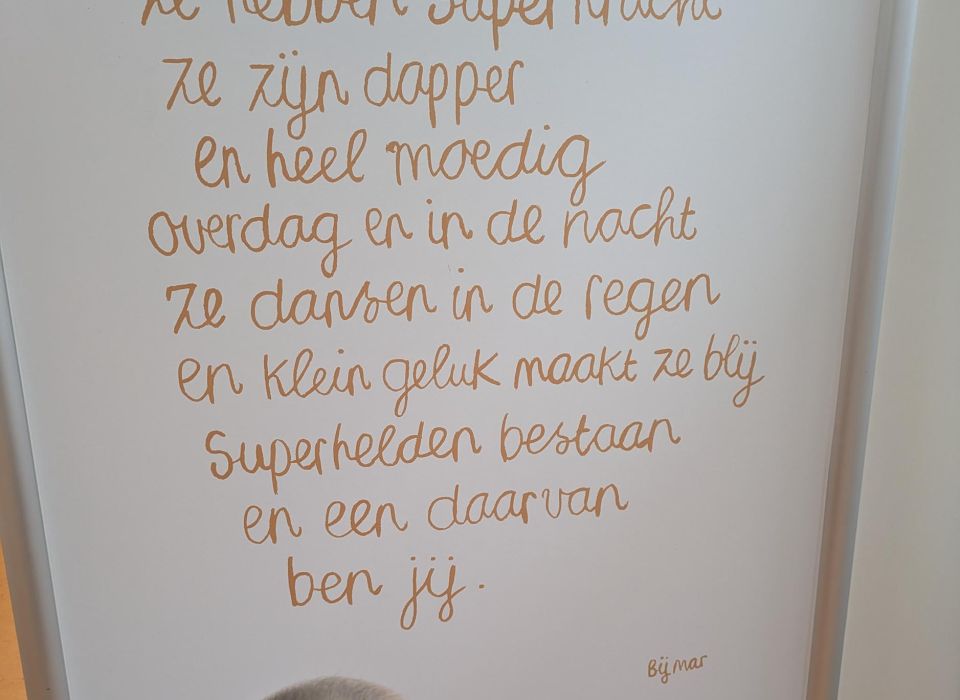 ze hebben superkracht
ze zijn dapper
en heel moedig
overdag en in de nacht
ze dansen in de regen
en klein geluk maakt ze blij
Superhelden bestaan
en een daarvan
ben jij.
Bij mar